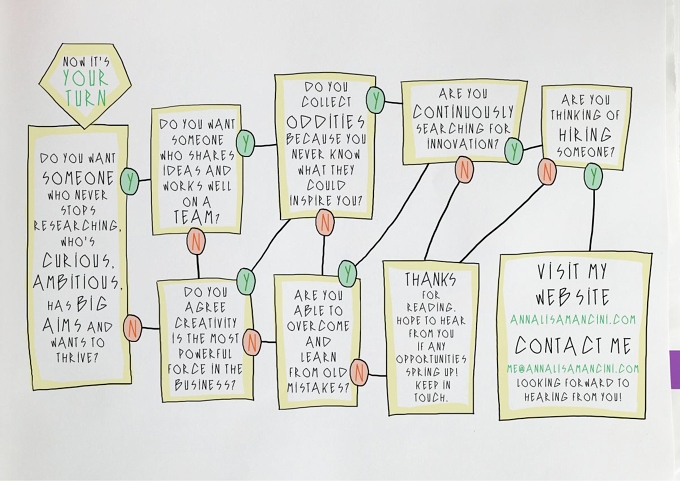 NOW IT'S
YOUR
TURN
DO YOU WANT
SOMEONE
WHO NEVER
STOPS
RESEARCHING,
WHO'S
CURIOUS,
AMBITIOUS,
HAS BIG
AIMS AND
WANTS TO
THRIVE?
Y
N
DO YOU WANT
SOMEONE
WHO SHARES
IDEAS AND
WORKS WELL
ON A
TEAM?
Y
N
DO YOU
AGREE
CREATIVITY
IS THE MOST
POWERFUL
FORCE IN THE
BUSINESS?
Y
N
DO YOU
COLLECT
ODDITIES
BECAUSE YOU
NEVER KNOW
WHAT THEY
COULD
INSPIRE YOU?
Y
N
ARE YOU
ABLE TO
OVERCOME
AND
LEARN
FROM OLD
MISTAKES?
Y
N
ARE YOU
CONTINUOUSLY
SEARCHING FOR
INNOVATION?
Y
N
THANKS
FOR
READING.
HOPE TO HEAR
FROM YOU
IF ANY
OPPORTUNITIES
SPRING UP!
KEEP IN
TOUCH.
ARE YOU
THINKING OF
HIRING
SOMEONE?
N
Y
VISIT MY
WEBSITE
ANNALISAMANCINI.COM
CONTACT ME
ME@ANNALISAMANCINI.COM
LOOKING FORWARD TO
HEARING FROM YOU!